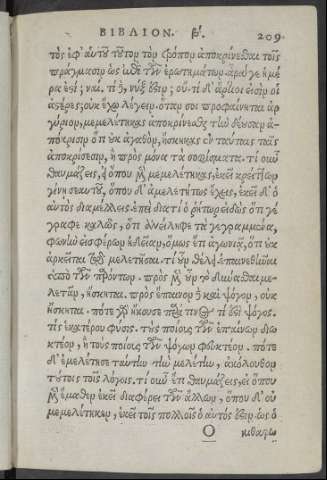 ΒΙΒΛΙΟΝ. β´. 209
τὸς ἐφ' αὑτοῦ τοῦτον τὸν τρόπον ἀποκρίνεσθαι τοῖς
πράγμασιν ὡς ἐπὶ τῶν ἐρωτημάτων; ἆρά γε ἡμέ
ρα ἐστί; ναί. τί δ', νὺξ ἐστίν; οὔ. τί δ' ἄρτιοι εἰσὶν οἱ
ἀστέρες; οὐκ ἔχω λέγειν. ὅταν σοι προφαίνηται ἀρ
γύριον, μεμελέτηκας ἀποκρίνεσθαι τὴν δέουσαν ἀ-
πόκρισιν ὅτι οὐκ ἀγαθόν, ἤσκηκας ἐν ταύταις ταῖς
ἀποκρίσεσιν, ἢ πρὸς μόνα τὰ σοφίσματα. τί οὖν
θαυμάζεις, εἰ ὅπου μὲν μεμελέτηκας, ἐκεῖ κρείττων
γίνῃ σεαυτοῦ, ὅπου δ' ἀμελετήτως ἔχεις, ἐκεῖ δ' ὁ
αὐτὸς διαμέλλεις. ἐπεὶ διὰ τί ὁ ῥήτωρ εἰδὼς ὅτι γέ
γραφε καλῶς, ὅτι ἀνείληφε τὰ γεγραμμένα,
φωνὴν εἰσφέρων ἡδεῖαν, ὅμως ἔτι ἀγωνιᾷ, ὅτι οὐκ
ἀρκεῖται τῷ μελετῆσαι. τί οὖν θέλει; ἐπαινεθῆναι
ὑπὸ τῶν παρόντων. πρὸς μὲν οὖν τὸ δύνασθαι με-
λετᾶν, ἤσκηται. πρὸς ἔπαινον δὲ καὶ ψόγον, οὐκ
ἤσκηται. πότε γὰρ ἤκουσε παρά τινος τί ἐστι ψόγος.
τίς ἑκατέρου φύσις. τοὺς ποίους τῶν ἐπαίνων διω
κτέον, ἢ τοὺς ποίους τῶν ψόγων φευκτέον. πότε
δ' ἐμελέτησε ταύτην τὴν μελέτην, ἀκόλουθον
τούτοις τοῖς λόγοις. τί οὖν ἔτι θαυμάζεις, εἰ ὅπου
μὲν ἔμαθεν ἐκεῖ διαφέρει τῶν ἄλλων, ὅπου δ' οὐ
μεμελέτηκεν, ἐκεῖ τοῖς πολλοῖς ὁ αὐτός ἐστιν ὡς ὁ
O κιθαρῳ